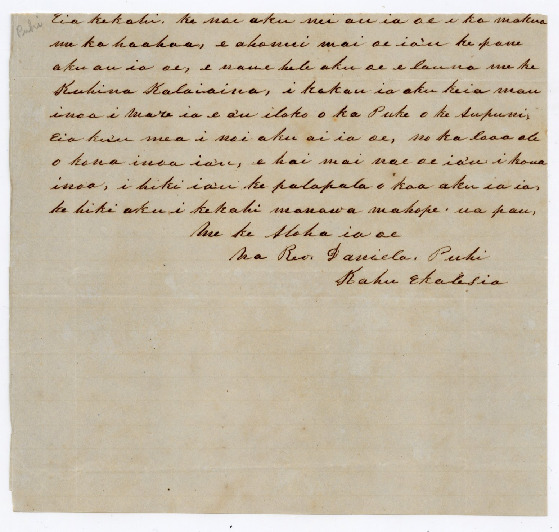 Puhi
Eia kekahi. ke noi aku nei au ia oe i ka makua
me ka haahaa, e ahonui mai oe ia'u ke pane
aku au ia oe, e naue hele aku oe e launa me ke
Kuhina Kalaiaina, i kakau ia aku keia mau
inoa i Mare ia e a'u iloko o ka Puke o ke Aupuni,
Eia ka'u mea i noi aku ai ia oe, no ka loaa ole
o kona inoa ia'u, e hai mai nae oe ia'u i kona
inoa, i hiki ia'u ke palapala o koa aku ia ia,
ke hiki aku i kekahi manawa mahope. ua pau,
Me ke Aloha ia oe
Na Rev. Daniela. Puhi
Kahu Ekalesia